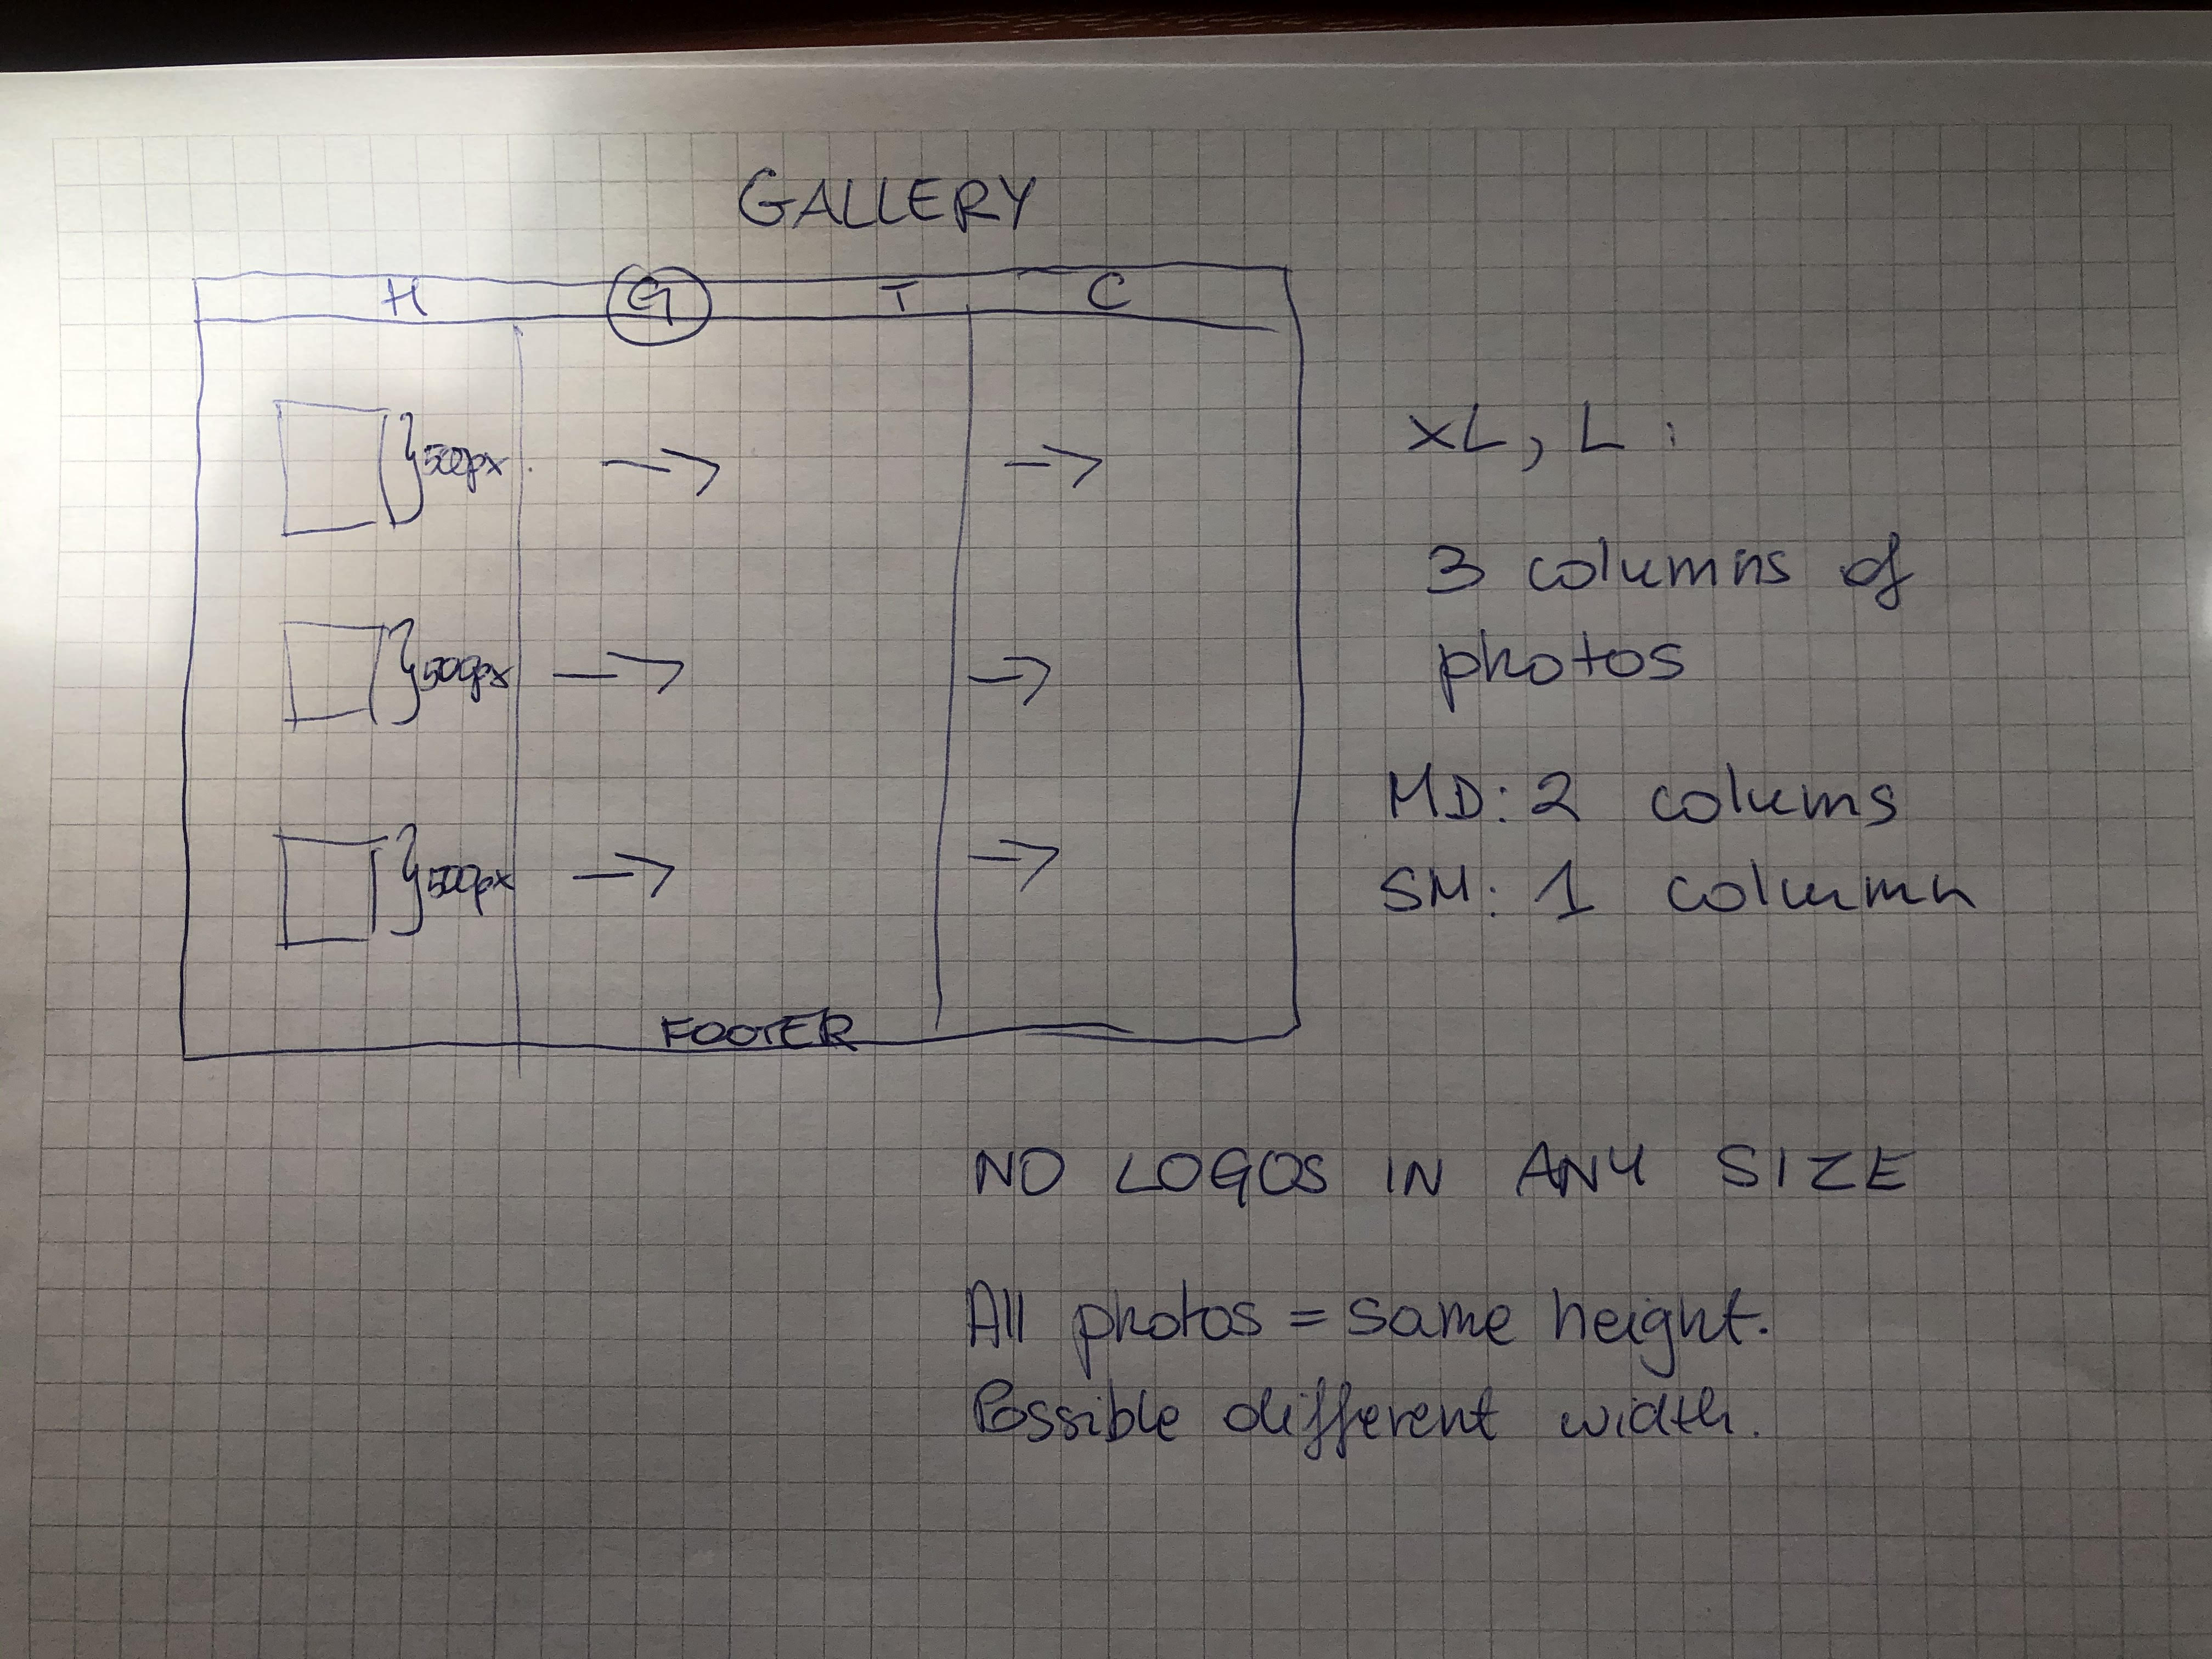 GALLERY
H G T C
500px
500px
500px
FOOTER
XL, L:
3 columns of
photos
MD: 2 colums
SM: 1 column
NO LOGOS IN ANY SIZE
All photos = same height.
Possible different width.